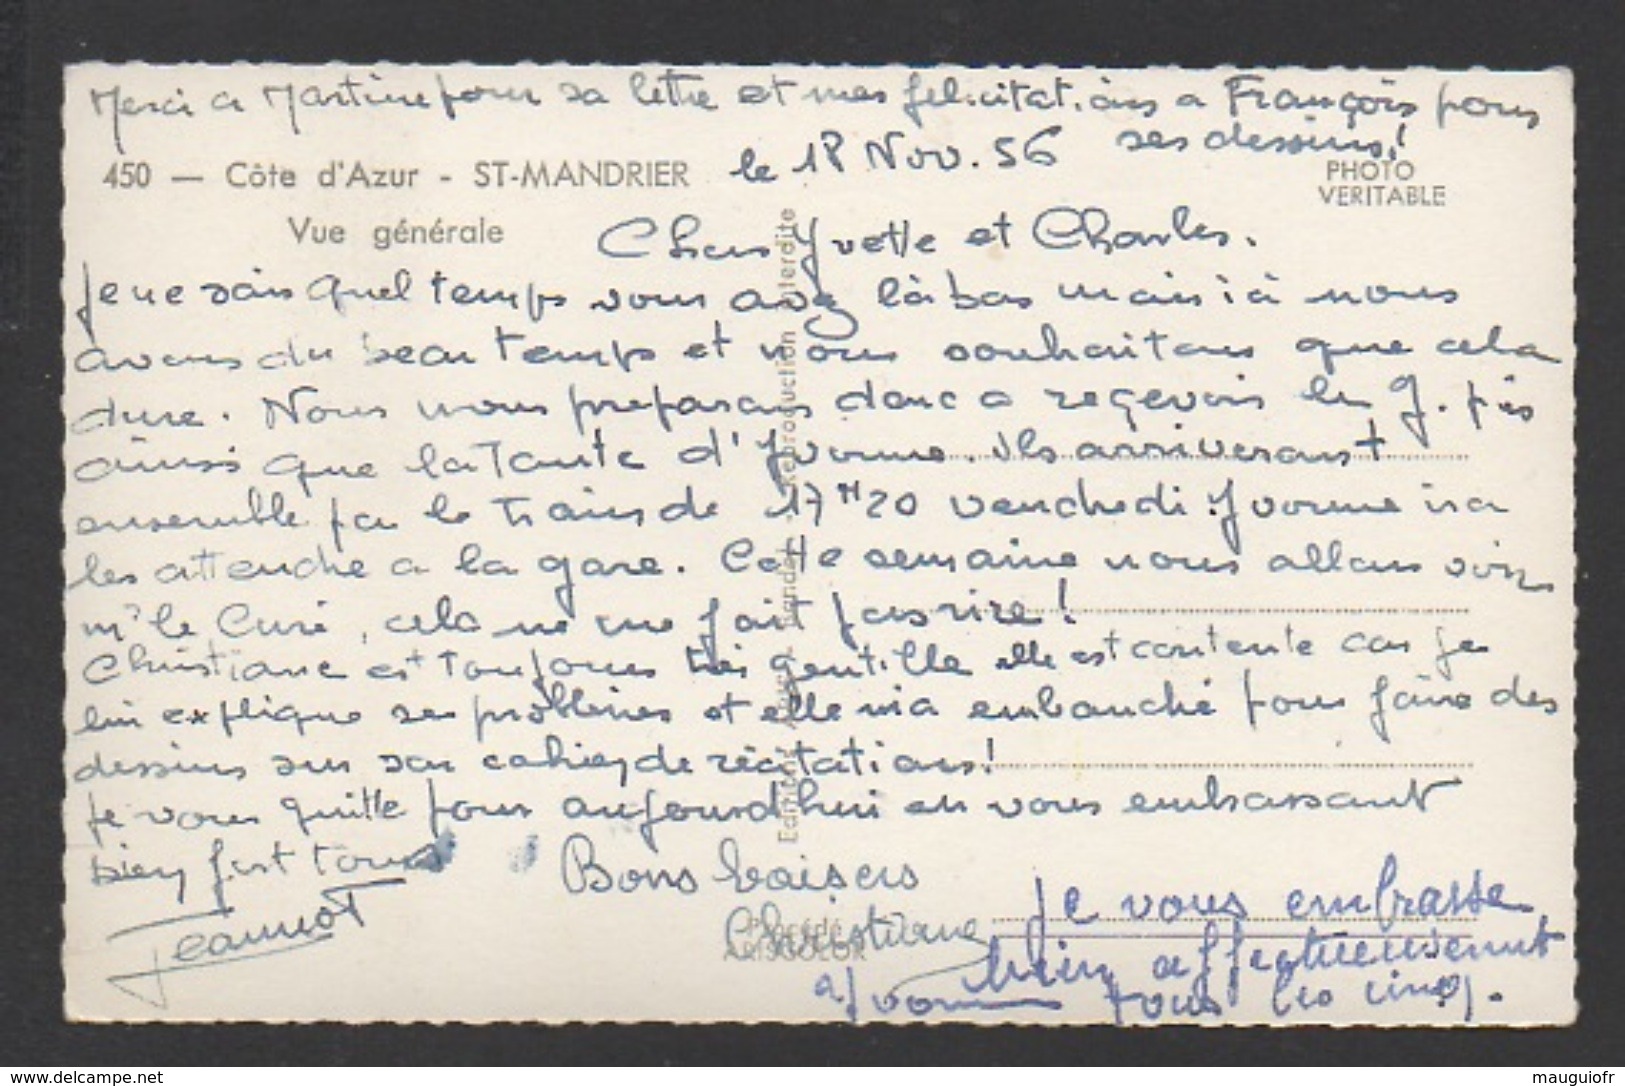 Merci a Martine pour sa lettre et mes felicitations a François pour
ses dessins!
le 18 Nov. 56
450 — Côte d'Azur - ST-MANDRIER
Vue générale
PHOTO
VERITABLE
Chers Yvette et Charles.
Je ne sais quel temps vous avez là bas mais ici nous
avons du beau temps et nous souhaitons que cela
dure. Nous nous préparons donc a reçevoir les J.
ainsi que la tante d'Yvonne. ils arriveront
ensemble par le train de 17H20 vendredi. Yvonne ira
les attendre a la gare. Cette semaine nous allons voir
Mr le Curé, cela ne me fait pas rire!
Christiane est toujours très gentille elle est contente car je
lui explique ses problèmes et elle m'a embauché pour faire des
dessins sur son cahier de récitations!
Je vous quitte pour aujourd'hui en vous embrassant
bien fort tous
Jeannot
Bons baisers
Christiane
Je vous embrasse
bien affectueusement
tous les cinq.
Yvonne
Reproduction interdite
Procédé
ARISCOLOR
www.delcampe.net
mauguiofr